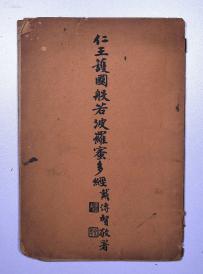 仁王護國般若波羅蜜多經戴傳賢敬署